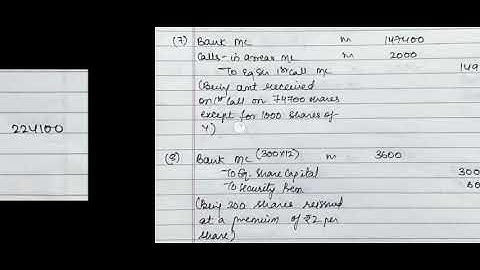 224100
(7) Bank A/c Dr 147400
Calls-in arrear A/c Dr 2000
To Eq Sh 1st call A/c 149
(Being amt received
on 1st call on 74700 shares
except for 1000 shares of
Y)
(8) Bank A/c (300x12) Dr 3600
To Eq. Share Capital 300
To Security Rem 60
(Being 300 shares reissued
at a premium of ₹2 per
share)